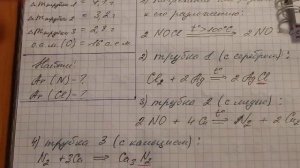 m трубки 2 = 3,2 г
m трубки 3 = 2,8 г
а.е.м. (O) = 16 а.е.м.
Найти:
Ar (N) - ?
Ar (Cl) - ?
к его разложению:
2 NOCl t>100°C ⇒ 2 NO
2) трубка 1 (с серебром):
Cl₂ + 2 Ag t° ⇒ 2 AgCl
3) трубка 2 (с медью):
2 NO + 4 Cu t° ⇒ N₂ + 2 Cu₂
4) трубка 3 (с кальцием):
N₂ + 3Ca ⇒ Ca₃N₂